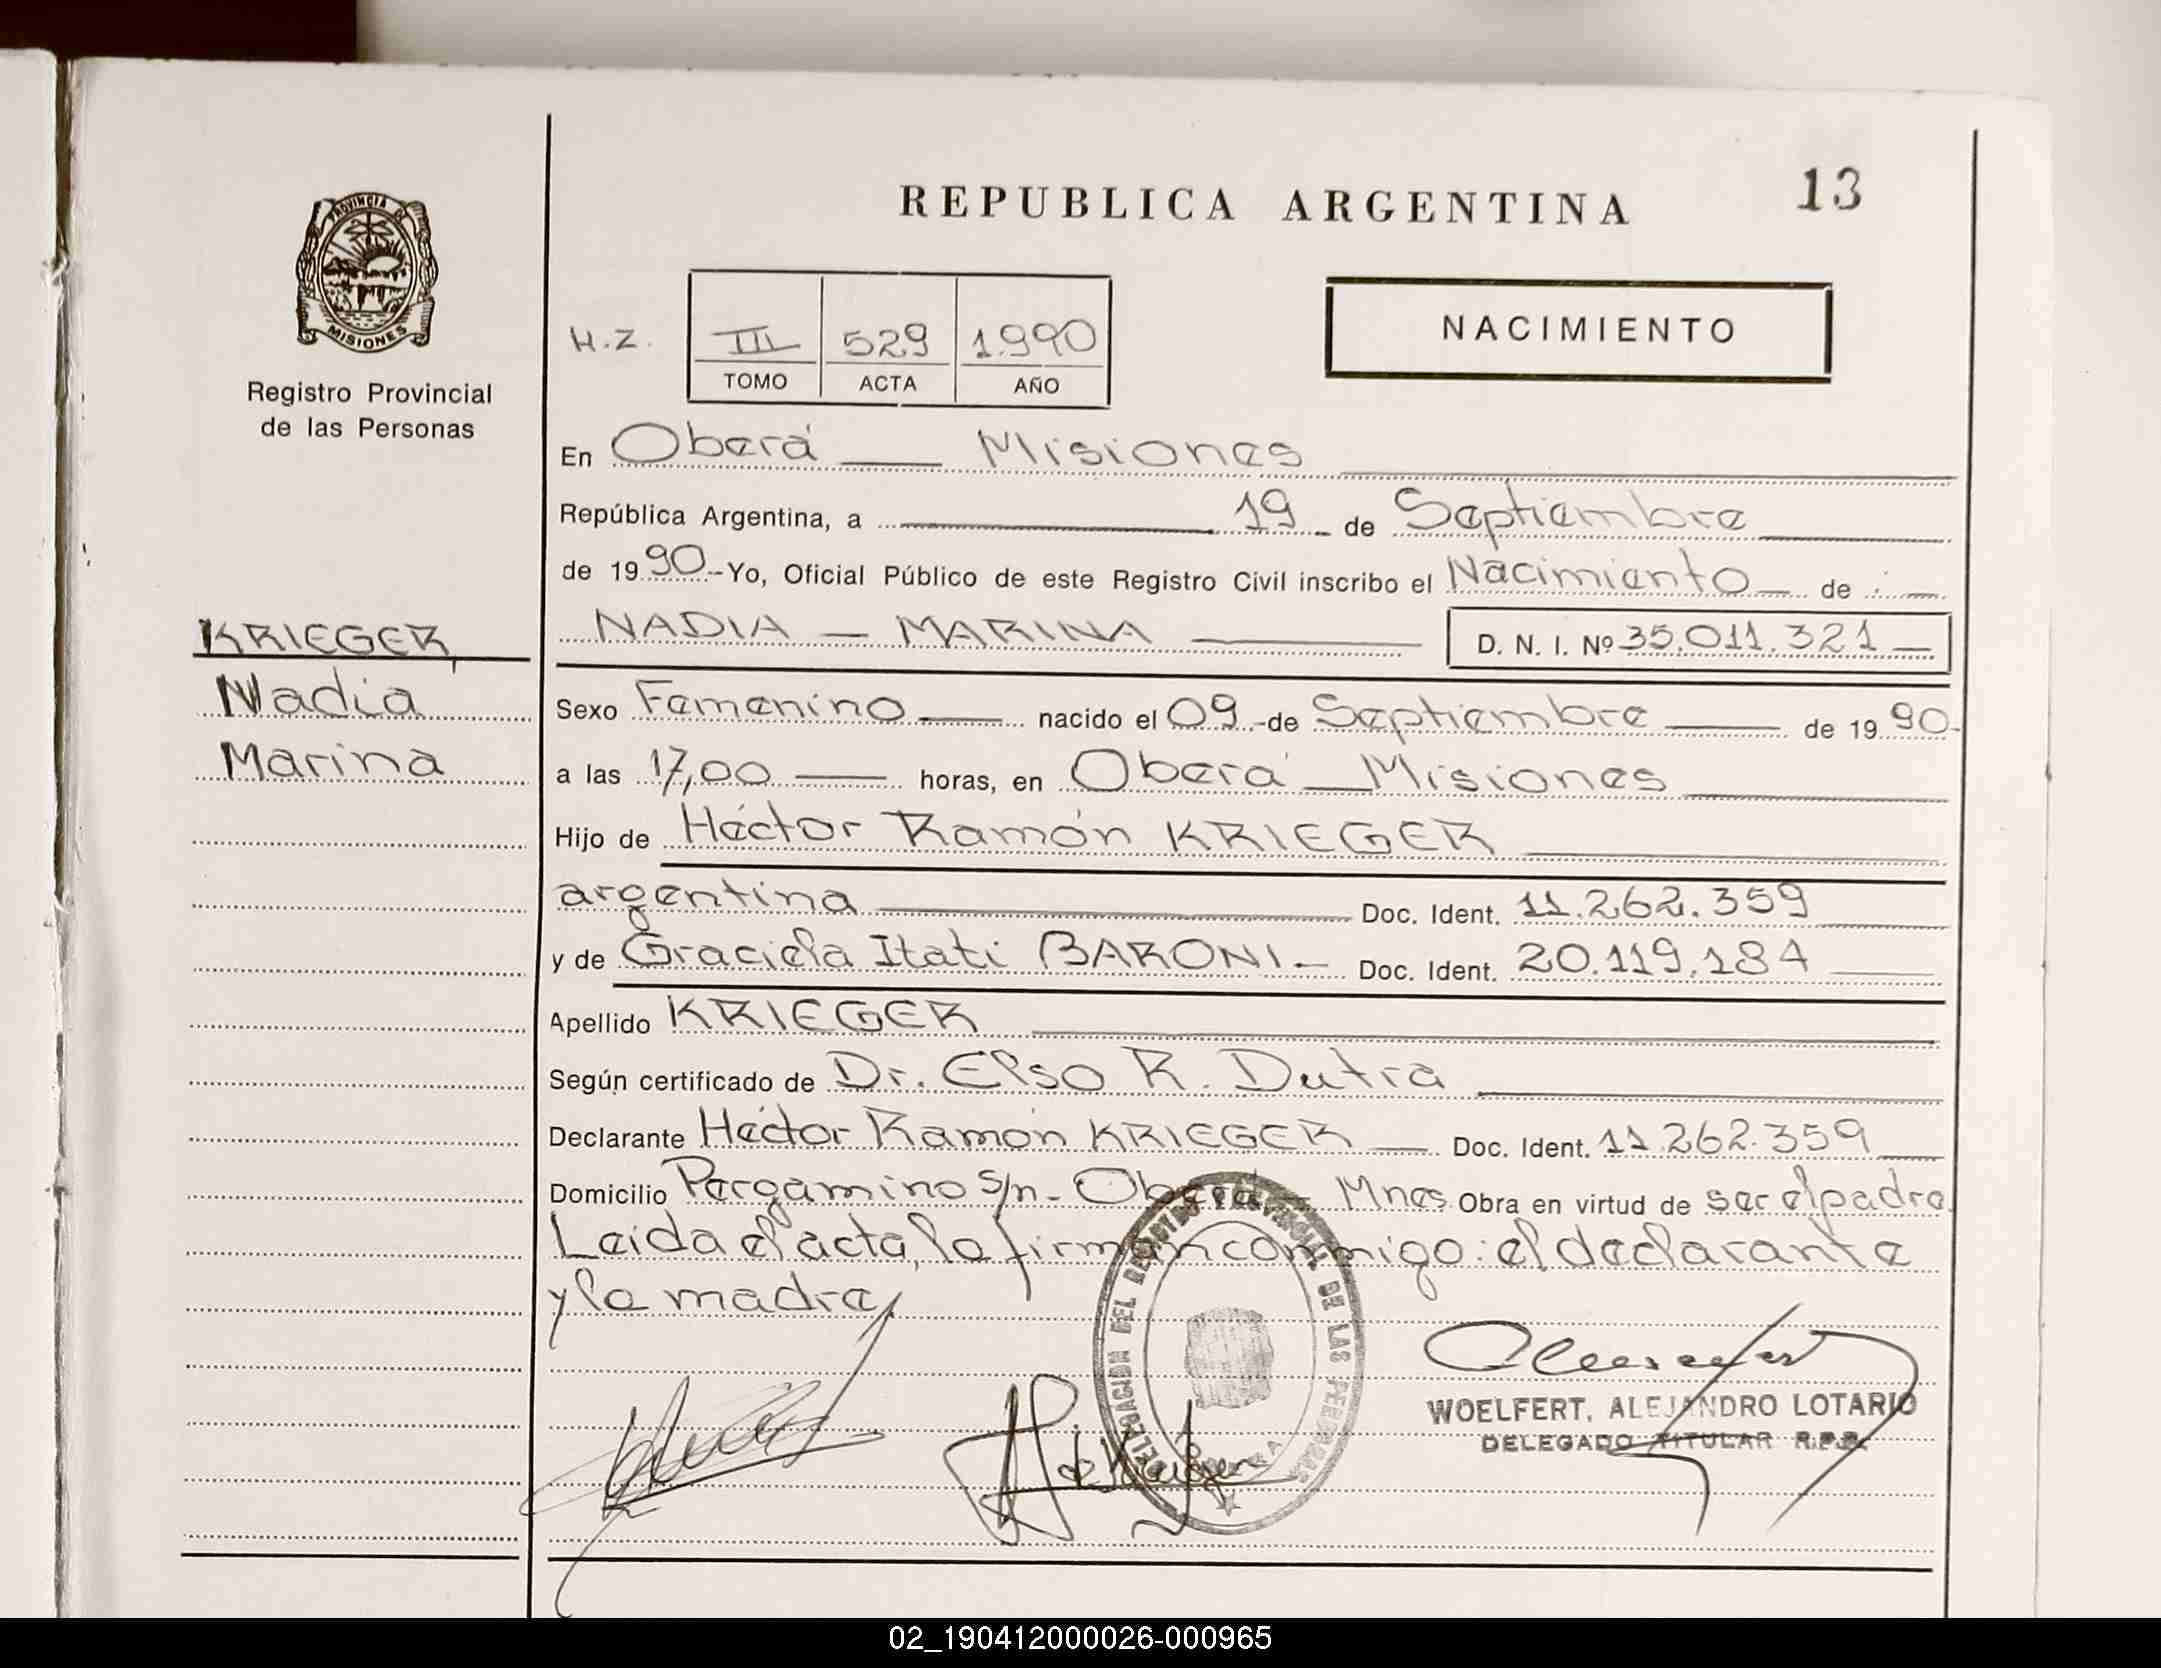 REPUBLICA ARGENTINA
13
PROVINCIA DE
MISIONES
Registro Provincial
de las Personas
H.Z.
III 529 1.990
TOMO ACTA AÑO
NACIMIENTO
En Oberá Misiones
República Argentina, a 19 de Septiembre
de 1990-Yo, Oficial Público de este Registro Civil inscribo el Nacimiento de :
NADIA - MARINA D. N. I. Nº 35.011.321
KRIEGER,
Nadia
Marina
Sexo Femenino nacido el 09 de Septiembre de 1990
a las 17,00 horas, en Oberá Misiones
Hijo de Héctor Ramón KRIEGER
argentina Doc. Ident. 11.262.359
y de Graciela Itati BARONI - Doc. Ident. 20.119.184
Apellido KRIEGER
Según certificado de Dr. Elso R. Dutra
Declarante Héctor Ramón KRIEGER Doc. Ident. 11.262.359
Domicilio Pergamino s/n - Oberá - Mnes Obra en virtud de ser el padre
Leida el acta, la firman conmigo: el declarante
y la madre,
DELEGACION DEL REGISTRO PROVINCIAL DE LAS PERSONAS
WOELFERT, ALEJANDRO LOTARIO
DELEGADO TITULAR R.P.P.
02_190412000026-000965